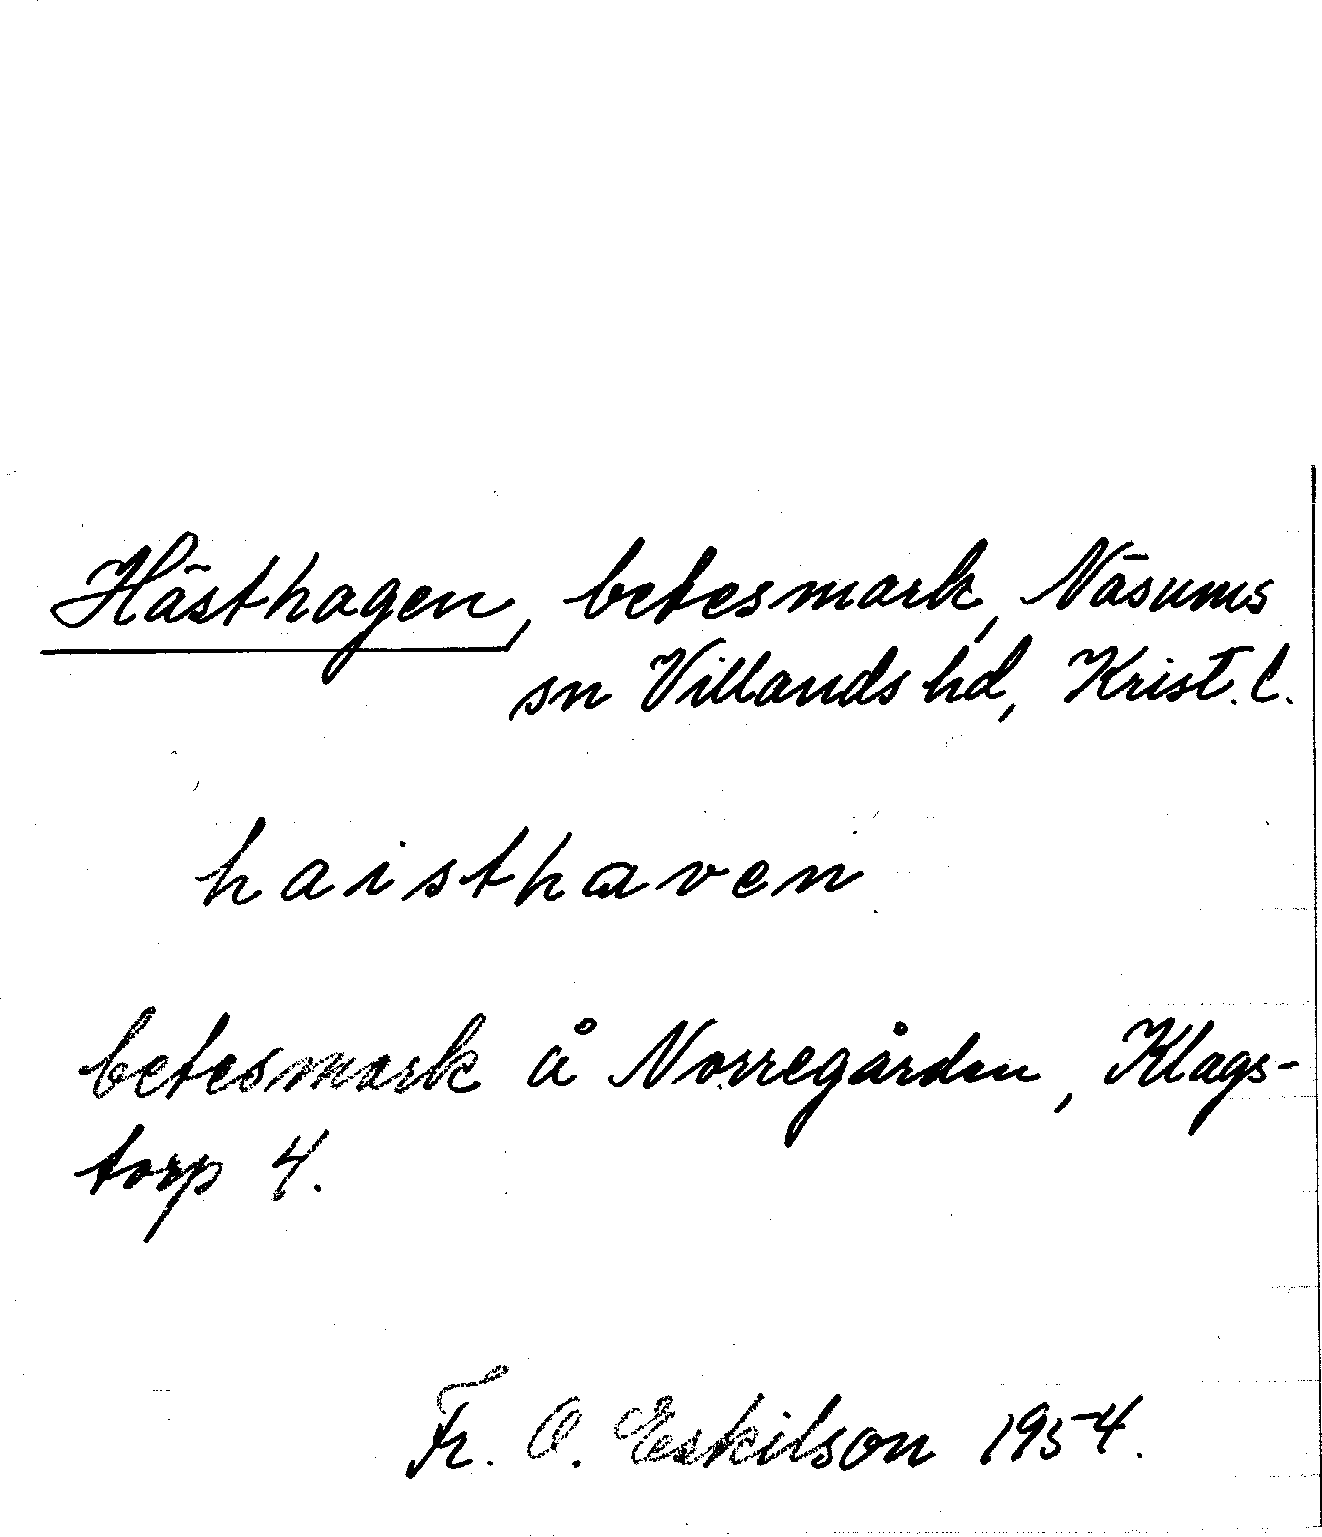 Hästhagen, betesmark, Näsums
sn Villands hd, Krist. l.
haisthaven
betesmark å Norregården, Klags-
torp 4.
Fr. O. Eskilson 1954.